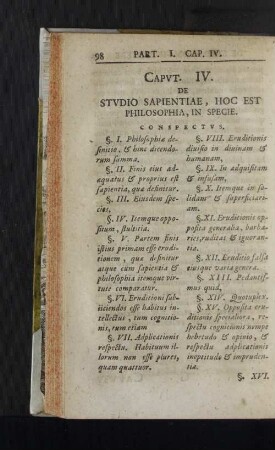 98 PART. I. CAP. IV.
CAPVT. IV.
DE
STVDIO SAPIENTIAE, HOC EST
PHILOSOPHIA, IN SPECIE.
CONSPECTVS.
§. I. Philosophiæ de-
finitio, & hinc dicendo-
rum summa.
§. II. Finis eius ad-
æquatus & proprius est
sapientia, quæ definitur.
§. III. Eiusdem spe-
cies.
§. IV. Itemque oppo-
situm, stultitia.
§. V. Partem finis
istius primam esse erudi-
tionem, quæ definitur
atque cum sapientia &
philosophia itemque vir-
tute comparatur.
§. VI. Eruditioni sub-
iiciendos esse habitus in-
tellectus, tum cognitio-
nis, tum etiam
§. VII. Adplicationis
respectu. Habituum il-
lorum non esse plures,
quam quatuor.
§. VIII. Eruditionis
diuisio in diuinam &
humanam,
§. IX. In adquisitam
& infusam,
§. X. Itemque in so-
lidam & superficiari-
am.
§. XI. Eruditionis op-
posita generalia, barba-
ries, ruditas & ignoran-
tia.
§. XII. Eruditio falsa
eiusque varia genera.
§. XIII. Pedantis-
mus quid,
§. XIV. Quotuplex.
§. XV. Opposita eru-
ditionis specialiora, re-
spectu cognitionis nempe
hebetudo & opinio, &
respectu adplicationis
ineptitudo & impruden-
tia.
§. XVI.